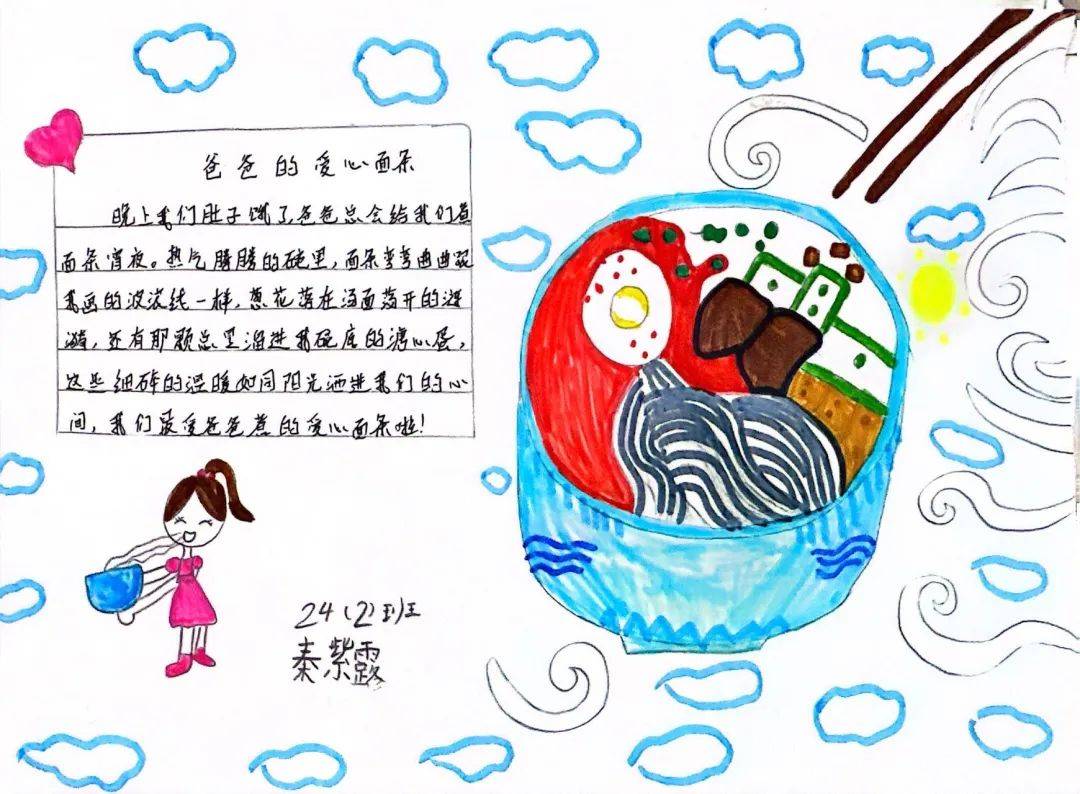 爸爸的爱心面条
晚上我们肚子饿了,爸爸总会给我们煮
面条宵夜。热气腾腾的碗里,面条弯弯曲曲跟
我画的波浪线一样,葱花落在汤面荡开的涟
漪,还有那颗总里溜进我碗底的溏心蛋,
这些细碎的温暖如同阳光洒进我们的心
间,我们最爱爸爸煮的爱心面条啦!
24(2)班
秦紫露